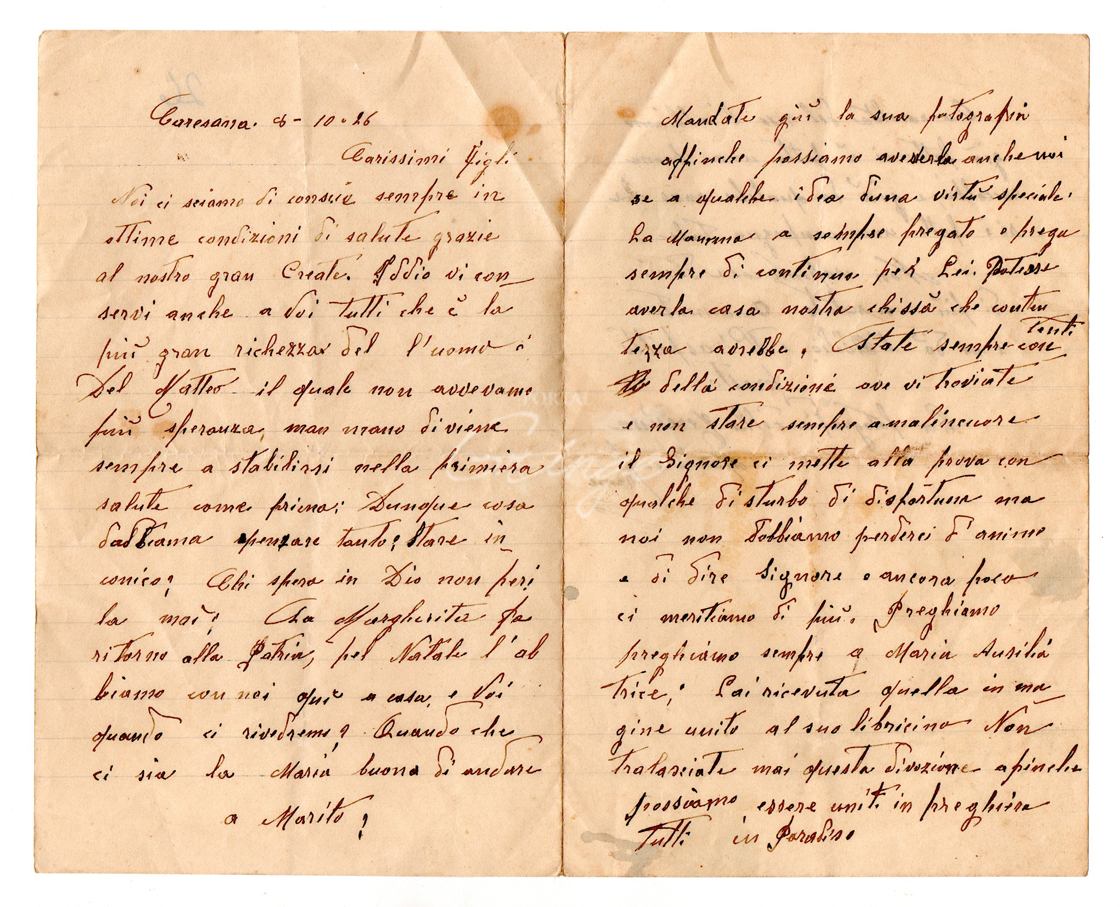 Caresana. 8- 10-26
Carissimi Figli
Noi ci sciamo di consuè sempre in
ottime condizioni di salute grazie
al nostro gran Creatè. Iddio vi con
servi anche a Voi tutti che è la
più gran richezza del l'uomo e
Del Matteo il quale non avvevame
più speranza, man mano diviene
sempre a stabilirsi nella primiera
salute come prima; Dunque cosa
dobbiama penzare tanto? Stare in
conico; Chi spera in Dio non peri
la mai; La Margherita fa
ritorno alla Patria, pel Natale l'ab
biamo con noi qui a casa, e Voi
quando ci rivedremo? Quando che
ci sia la Maria buona di andare
a Marito?
Mandate giù la sua fotografia
affinche possiamo avederla anche noi
se a qualche idea d'una virtù speciale.
La Mamma a sempre pregato e prega
sempre di continuo per Lei. Potesse
averla casa nostra chissà che conten
tezza avrebbe. State sempre con
tenti
della condizione ove vi troviate
e non stare sempre amalincuore
il Signore ci mette alla prova con
qualche disturbo di disfortuna ma
noi non dobbiamo perderci d'anime
e di dire Signore e ancora poco
ci meritiamo di più. Preghiamo
preghiamo sempre a Maria Ausilia
trice; Lai ricevuta quella inma
gine unito al suo libricino Non
tralasciate mai questa divozione apinche
possiamo essere uniti in preghiera
Tutti in Paradiso